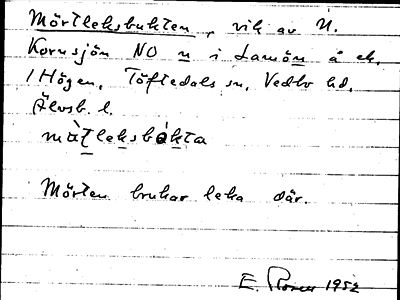 Mörtleksbukten, vik av N.
Kornsjön NO n i Lamön å ek.
1 Högen, Töftedals sn, Vedbo hd,
Älvsb. l.
mo᷄tleksbokta
Mörten brukar leka där.
E. 1952